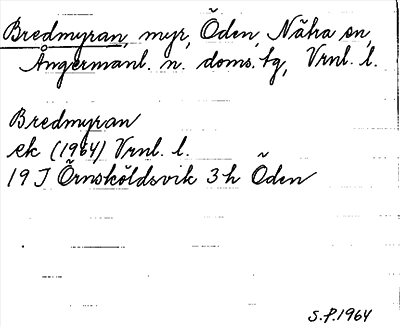 Bredmyran, myr, Öden, Nätra sn,
Ångermanl. n. doms. tg, Vrnl. l.
Bredmyran
ek (1964) Vrnl. l.
19 J Örnsköldsvik 3h Öden
S.F. 1964